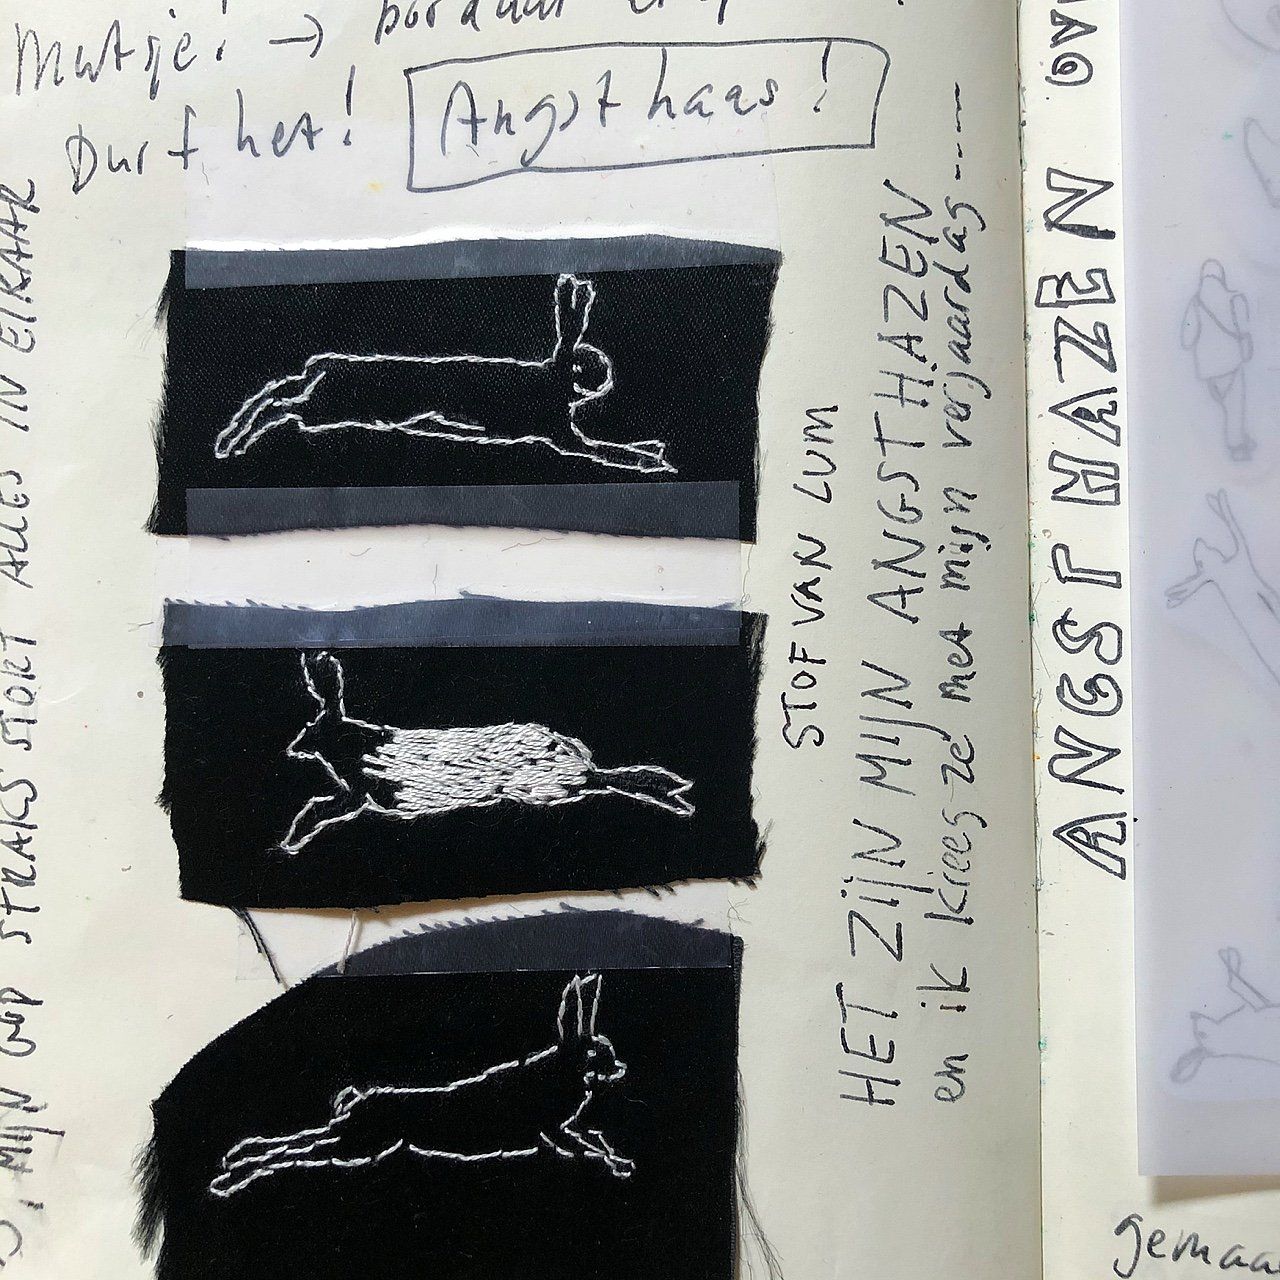 Matje! → borduur
Durf het! Angsthaas!
MIJN STRAKS STORT ALLES IN ELKAAR
STOF VAN LUM
HET ZIJN MIJN ANGSTHAZEN
en ik kreeg ze met mijn verjaardag----
ANGSTHAZEN
gemaa